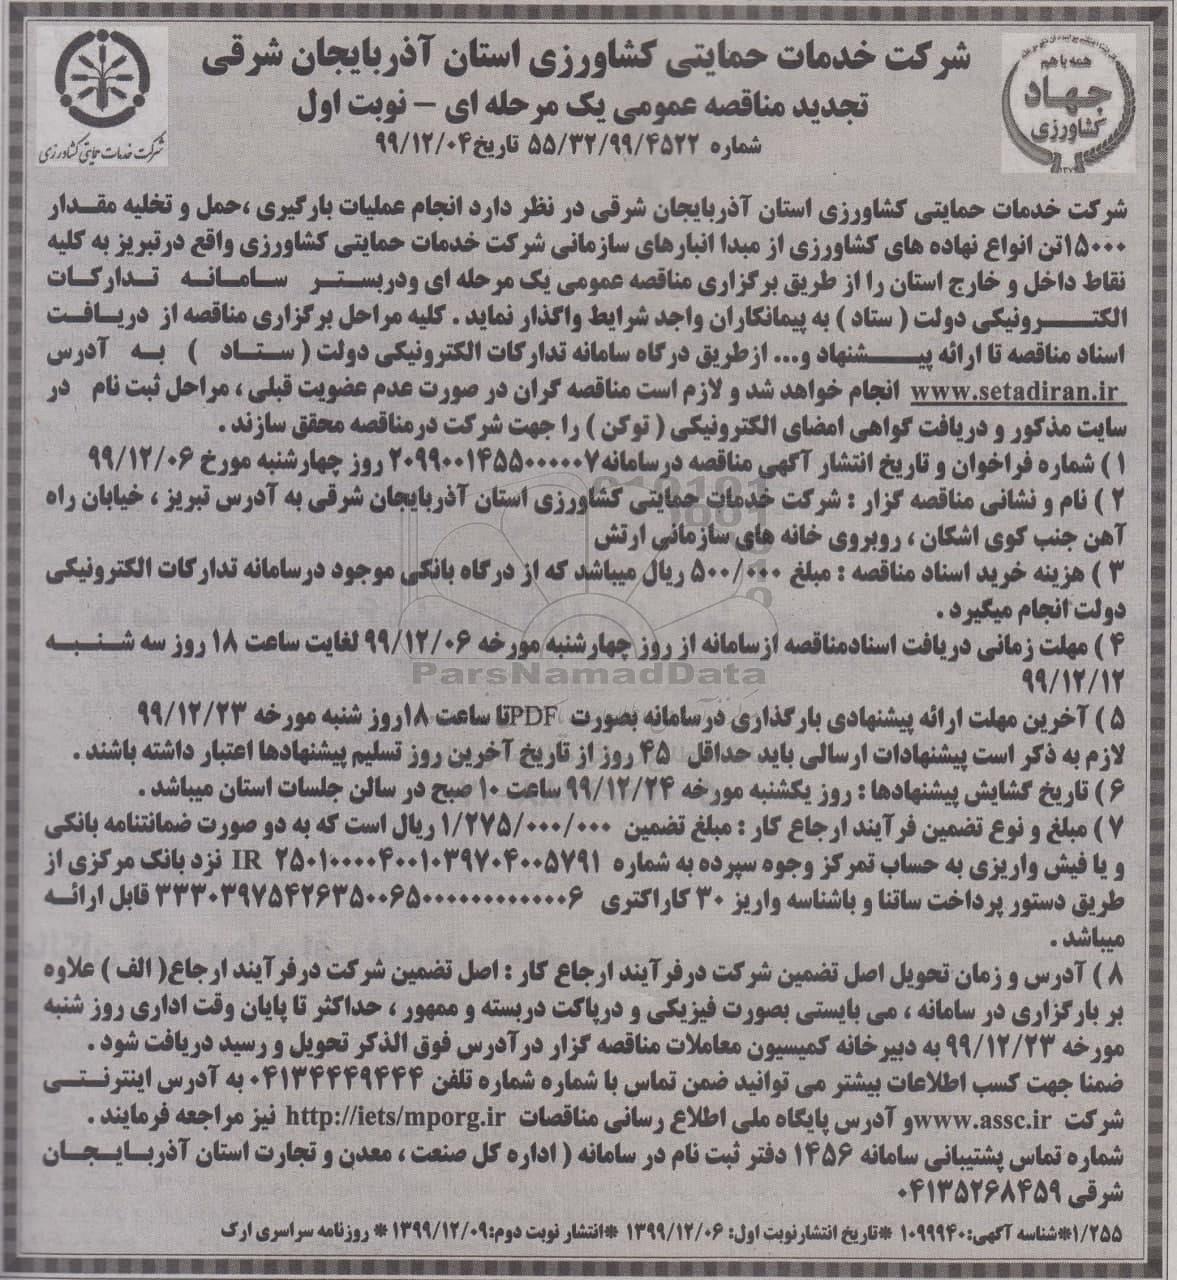 شرکت خدمات حمایتی کشاورزی استان آذربایجان شرقی
تجدید مناقصه عمومی یک مرحله ای – نوبت اول
شماره ۵۵/۳۲/۹۹/۴۵۲۲ تاریخ ۹۹/۱۲/۰۴
همه با هم
جهاد
کشاورزی
شرکت خدمات حمایتی کشاورزی
شرکت خدمات حمایتی کشاورزی استان آذربایجان شرقی در نظر دارد انجام عملیات بارگیری ،حمل و تخلیه مقدار
۱۵۰۰۰تن انواع نهاده های کشاورزی از مبدا انبارهای سازمانی شرکت خدمات حمایتی کشاورزی واقع درتبریز به کلیه
نقاط داخل و خارج استان را از طریق برگزاری مناقصه عمومی یک مرحله ای ودربستر سامانه تدارکات
الکترونیکی دولت ( ستاد ) به پیمانکاران واجد شرایط واگذار نماید . کلیه مراحل برگزاری مناقصه از دریافت
اسناد مناقصه تا ارائه پیشنهاد و... ازطریق درگاه سامانه تدارکات الکترونیکی دولت ( ستاد ) به آدرس
www.setadiran.ir انجام خواهد شد و لازم است مناقصه گران در صورت عدم عضویت قبلی ، مراحل ثبت نام در
سایت مذکور و دریافت گواهی امضای الکترونیکی ( توکن ) را جهت شرکت درمناقصه محقق سازند .
۱ ) شماره فراخوان و تاریخ انتشار آگهی مناقصه درسامانه۲۰۹۹۰۰۱۴۵۵۰۰۰۰۰۷ روز چهارشنبه مورخ ۹۹/۱۲/۰۶
۲ ) نام و نشانی مناقصه گزار : شرکت خدمات حمایتی کشاورزی استان آذربایجان شرقی به آدرس تبریز ، خیابان راه
آهن جنب کوی اشکان ، روبروی خانه های سازمانی ارتش
۳ ) هزینه خرید اسناد مناقصه : مبلغ ۵۰۰/۰۰۰ ریال میباشد که از درگاه بانکی موجود درسامانه تدارکات الکترونیکی
دولت انجام میگیرد .
۴ ) مهلت زمانی دریافت اسنادمناقصه ازسامانه از روز چهارشنبه مورخه ۹۹/۱۲/۰۶ لغایت ساعت ۱۸ روز سه شنبه
۹۹/۱۲/۱۲
ParsNamadData
۵ ) آخرین مهلت ارائه پیشنهادی بارگذاری درسامانه بصورت PDFتا ساعت ۱۸روز شنبه مورخه ۹۹/۱۲/۲۳
لازم به ذکر است پیشنهادات ارسالی باید حداقل ۴۵ روز از تاریخ آخرین روز تسلیم پیشنهادها اعتبار داشته باشند .
۶ ) تاریخ گشایش پیشنهادها : روز یکشنبه مورخه ۹۹/۱۲/۲۴ ساعت ۱۰ صبح در سالن جلسات استان میباشد .
۷ ) مبلغ و نوع تضمین فرآیند ارجاع کار : مبلغ تضمین ۱/۲۷۵/۰۰۰/۰۰۰ ریال است که به دو صورت ضمانتنامه بانکی
و یا فیش واریزی به حساب تمرکز وجوه سپرده به شماره IR ۲۵۰۱۰۰۰۰۴۰۰۱۰۳۹۷۰۴۰۰۵۷۹۱ نزد بانک مرکزی از
طریق دستور پرداخت ساتنا و باشناسه واریز ۳۰ کاراکتری ۳۳۳۰۳۹۷۵۴۲۶۳۵۰۰۶۵۰۰۰۰۰۰۰۰۰۰۰۰۶ قابل ارائه
میباشد .
۸ ) آدرس و زمان تحویل اصل تضمین شرکت درفرآیند ارجاع کار : اصل تضمین شرکت درفرآیند ارجاع( الف ) علاوه
بر بارگزاری در سامانه ، می بایستی بصورت فیزیکی و درپاکت دربسته و ممهور ، حداکثر تا پایان وقت اداری روز شنبه
مورخه ۹۹/۱۲/۲۳ به دبیرخانه کمیسیون معاملات مناقصه گزار درآدرس فوق الذکر تحویل و رسید دریافت شود .
ضمنا جهت کسب اطلاعات بیشتر می توانید ضمن تماس با شماره شماره تلفن ۰۴۱۳۴۴۴۹۴۴۴ به آدرس اینترنتی
شرکت www.assc.irو آدرس پایگاه ملی اطلاع رسانی مناقصات http://iets/mporg.ir نیز مراجعه فرمایند .
شماره تماس پشتیبانی سامانه ۱۴۵۶ دفتر ثبت نام در سامانه ( اداره کل صنعت ، معدن و تجارت استان آذربایجان
شرقی ۰۴۱۳۵۲۶۸۴۵۹
۱/۲۵۵*شناسه آگهی:۱۰۹۹۹۴۰ *تاریخ انتشارنوبت اول: ۱۳۹۹/۱۲/۰۶ *انتشار نوبت دوم:۱۳۹۹/۱۲/۰۹ * روزنامه سراسری ارک